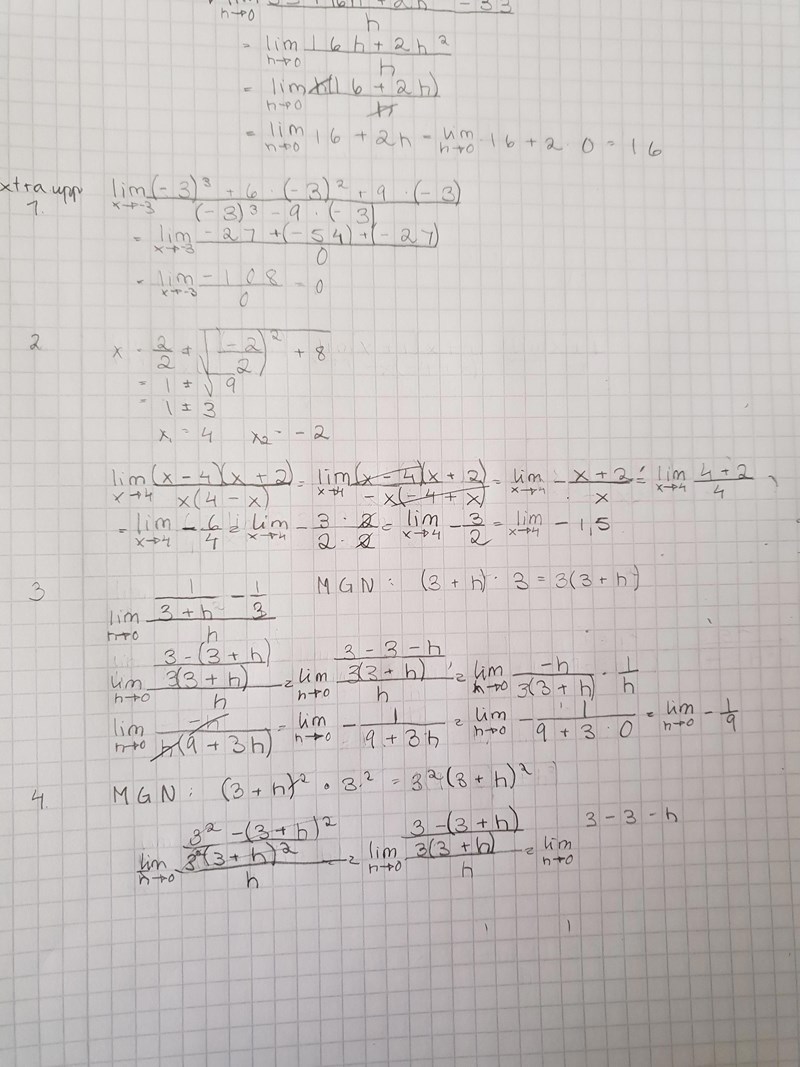 h→0
h
= lim h→0 (16h + 2h²)/h
= lim h→0 h(16 + 2h)/h
= lim h→0 16 + 2h = lim h→0 16 + 2 · 0 = 16
xtra upp
1. lim x→-3 ((-3)³ + 6 · (-3)² + 9 · (-3))/((-3)³ - 9 · (-3))
= lim x→-3 (-27 + (-54) + (-27))/0
= lim x→-3 -108/0 = 0
2 x = 2/2 ± √((-2/2)² + 8)
= 1 ± √9
= 1 ± 3
x₁ = 4 x₂ = -2
lim x→4 (x-4)(x+2)/x(4-x) = lim x→4 (x-4)(x+2)/-x(-4+x) = lim x→4 - (x+2)/x = lim x→4 (4+2)/4
= lim x→4 - 6/4 = lim x→4 - (3 · 2)/(2 · 2) = lim x→4 - 3/2 = lim x→4 - 1,5
3 lim h→0 (1/(3+h) - 1/3)/h MGN: (3+h) · 3 = 3(3+h)
lim h→0 ((3-(3+h))/(3(3+h)))/h = lim h→0 ((3-3-h)/(3(3+h)))/h = lim h→0 -h/(3(3+h)) · 1/h
lim h→0 -h/(h(9+3h)) = lim h→0 - 1/(9+3h) = lim h→0 - 1/(9+3·0) = lim h→0 - 1/9
4. MGN: (3+h)² · 3² = 3²(3+h)²
lim h→0 ((3²-(3+h)²)/(3²(3+h)²))/h = lim h→0 ((3-(3+h))/(3(3+h)))/h = lim h→0 3-3-h